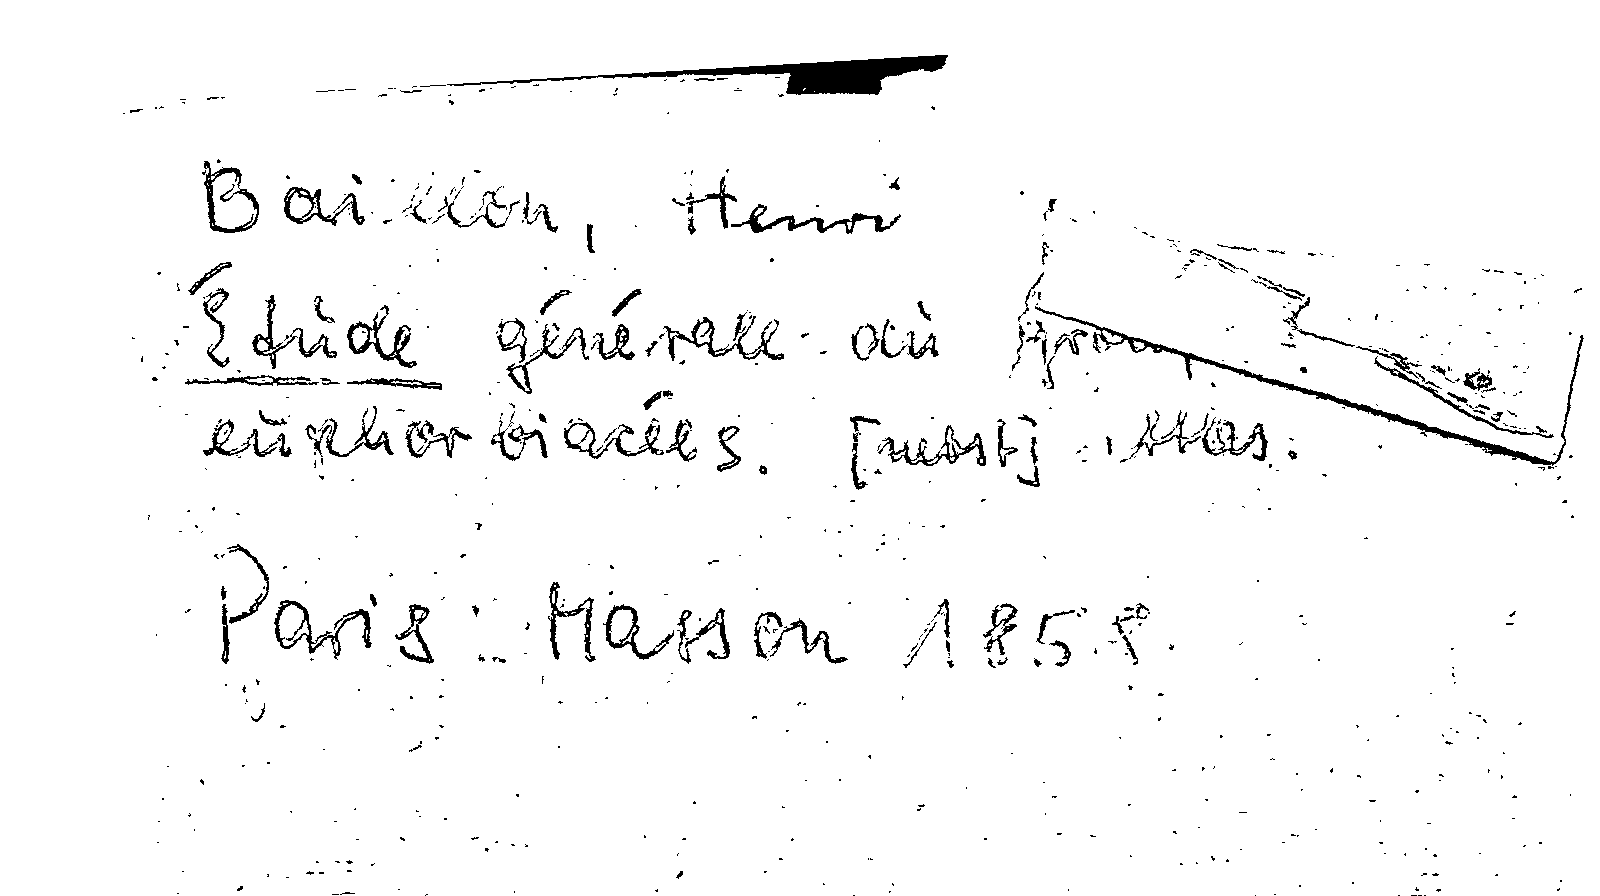 Baillon, Henri
Étude générale du
euphorbiacées. [nebst] Atlas.
Paris: Masson 1858